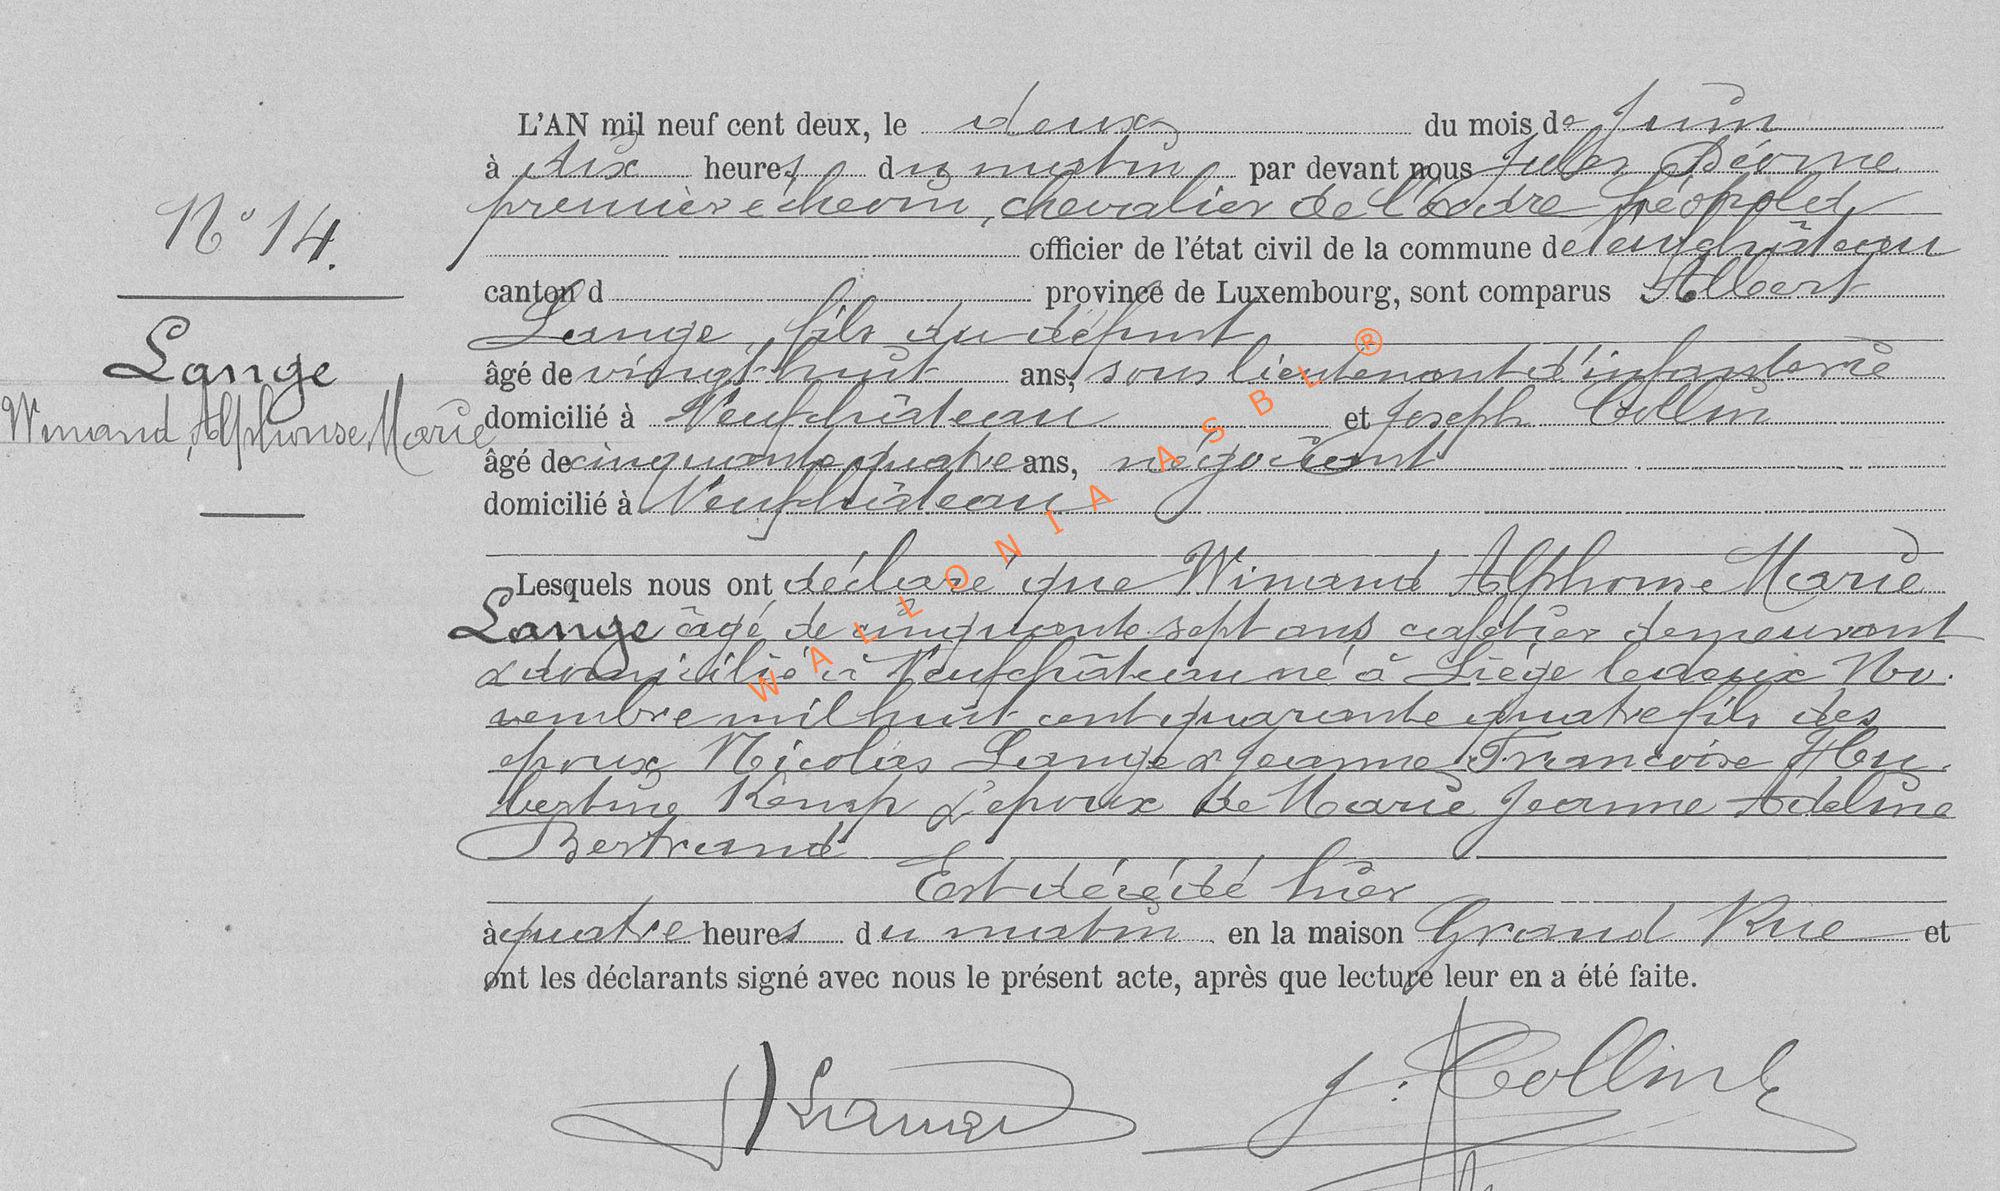 N° 14.
Lange
Winand, Alphonse, Marie
L'AN mil neuf cent deux, le deux du mois de Juin
à dix heures du matin par devant nous Jules
premier échevin, chevalier de l'Ordre Léopold,
officier de l'état civil de la commune de Neufchâteau
canton d province de Luxembourg, sont comparus Albert
Lange, fils du défunt
âgé de vingt-huit ans, sous lieutenant d'infanterie
domicilié à Neufchâteau et Joseph Collin
âgé de cinquante quatre ans, négociant
domicilié à Neufchâteau
Lesquels nous ont déclaré que Winand Alphonse Marie
Lange âgé de cinquante sept ans cafetier demeurant
& domicilié à Neufchâteau né à Liége le deux No
vembre mil huit cent quarante quatre fils des
époux Nicolas Lange & Jeanne Françoise Hu
bertine Kemp & époux de Marie Jeanne Adeline
Bertrand
Est décédé hier
à quatre heures du matin en la maison Grand Rue et
ont les déclarants signé avec nous le présent acte, après que lecture leur en a été faite.
Lange
J. Collin
WALLONIA ASBL ®